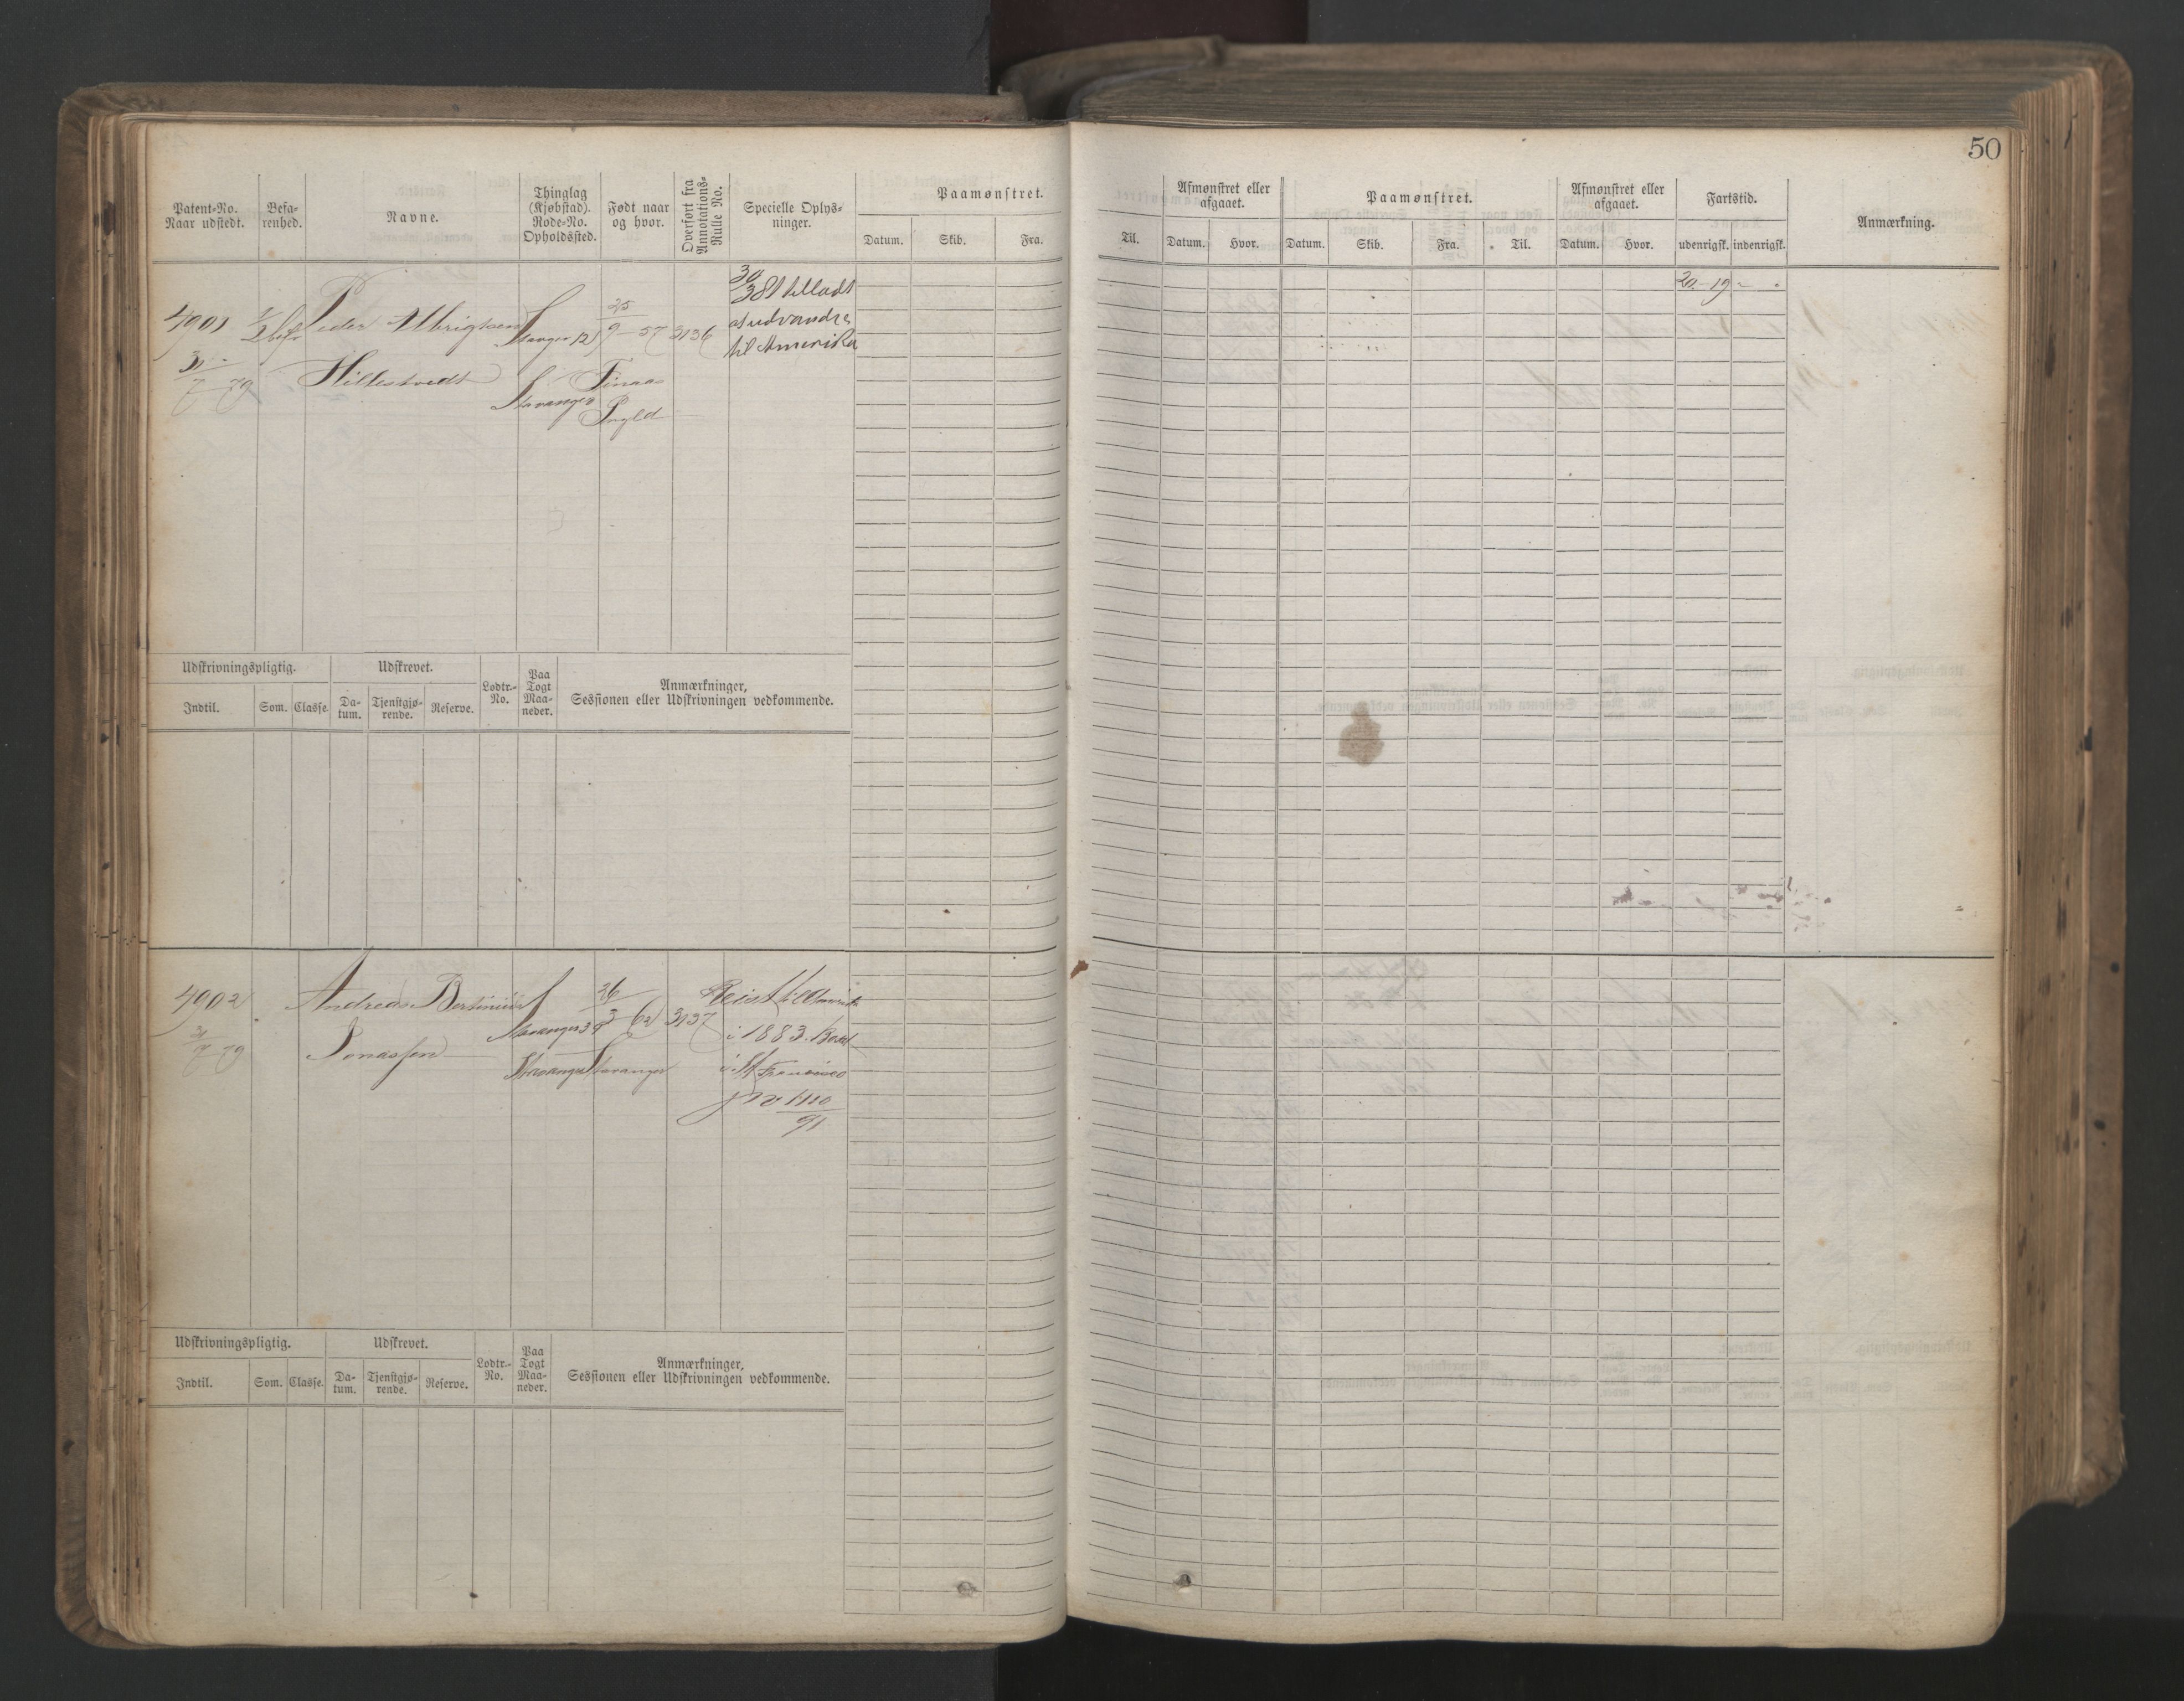 50
Patent-No. Naar udstedt.
Befa-renhed.
Navne.
Thinglag (Kjøbstad). Rode-No. Opholdssted.
Født naar og hvor.
Overført fra Annotations-Rulle No.
Specielle Oplys-ninger.
Paamønstret.
Datum. Skib. Fra.
Til.
Afmønstret eller afgaaet.
Datum. Hvor.
Paamønstret.
Datum. Skib. Fra. Til.
Afmønstret eller afgaaet.
Datum. Hvor.
Fartstid.
udenrigsk. indenrigsk.
Anmærkning.
4901 1/2 bef Peder Albrigtsen Stavanger 12 25/9-57 3136
31/7 79 Hillestvedt Stavanger Finaas Prgld
30/3 81 tilladt
at udvandre
til Amerika
20-19-
Udskrivningspligtig.
Indtil. Som. Classe.
Udskrevet.
Da-tum. Tjenstgjø-rende. Reserve.
Lodtr.-No.
Paa Togt Maa-neder.
Anmærkninger,
Sessionen eller Udskrivningen vedkommende.
4902 Andreas Bertinius Stavanger 26/3 62 3137
31/7 79 Jonassen Stavanger Stavanger
Reist til Amerika
i 1883.
i St Francisco
91
Udskrivningspligtig.
Indtil. Som. Classe.
Udskrevet.
Da-tum. Tjenstgjø-rende. Reserve.
Lodtr.-No.
Paa Togt Maa-neder.
Anmærkninger,
Sessionen eller Udskrivningen vedkommende.